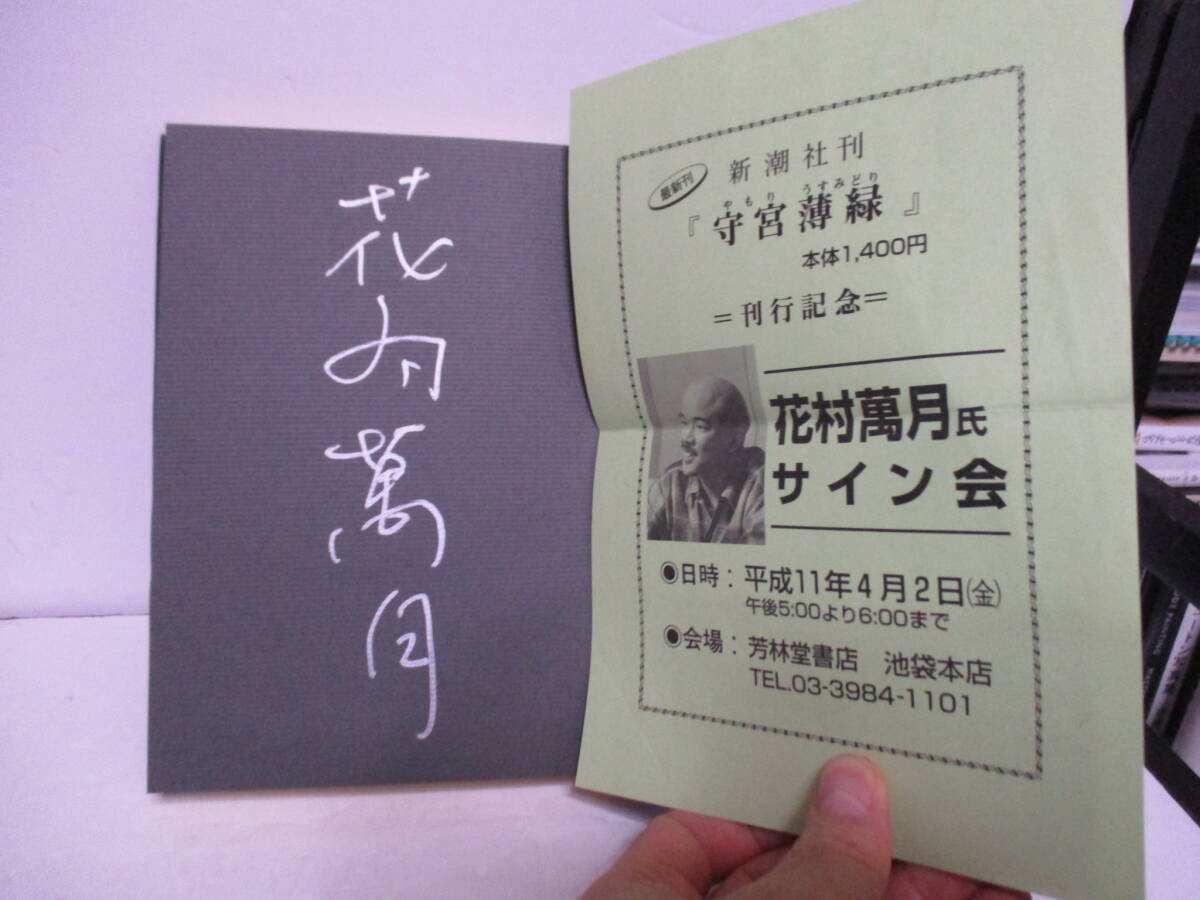 花村萬月
最新刊
新潮社刊
やもり うすみどり
『守宮薄緑』
本体1,400円
=刊行記念=
花村萬月氏
サイン会
◉日時：平成11年4月2日㈮
午後5:00より6:00まで
◉会場：芳林堂書店 池袋本店
TEL.03-3984-1101